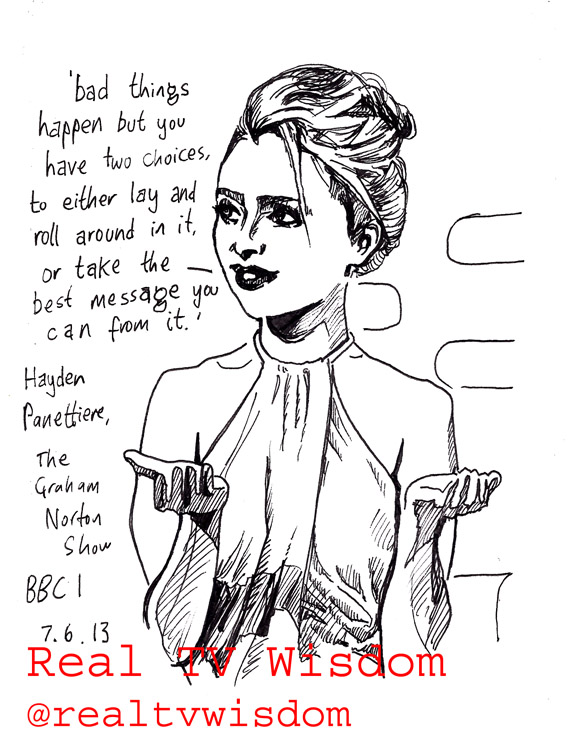 'bad things
happen but you
have two choices,
to either lay and
roll around in it,
or take the
best message you
can from it.'
Hayden
Panettiere,
The
Graham
Norton
Show
BBC 1
7.6.13
Real TV Wisdom
@realtvwisdom